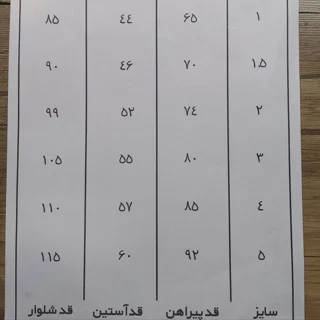 ۱ ۶۵ ۴۴ ۸۵
۱.۵ ۷۰ ۴۶ ۹۰
۲ ۷۴ ۵۲ ۹۹
۳ ۸۰ ۵۵ ۱۰۵
۴ ۸۵ ۵۷ ۱۱۰
۵ ۹۲ ۶۰ ۱۱۵
سایز قد پیراهن قد آستین قد شلوار